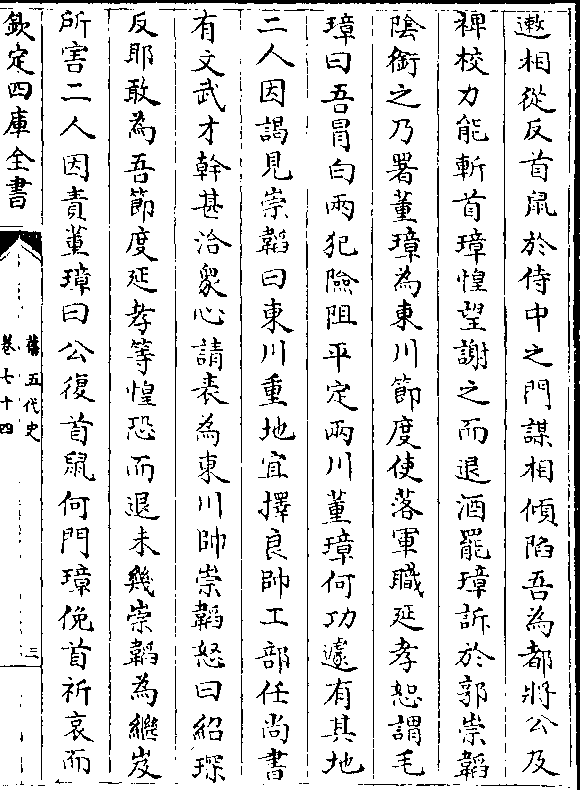 遬相從反首鼠於侍中之門謀相傾陷吾為都將公及
禆校力能斬首璋惶望謝之而退酒罷璋訴於郭崇韜
隂銜之乃署董璋為東川節度使落軍職延孝恕謂毛
璋曰吾冒白兩犯險阻平定兩川董璋何功遽有其地
二人因謁見崇韜曰東川重地宜擇良帥工部任尚書
有文武才幹甚洽衆心請表為東川帥崇韜怒曰紹琛
反耶敢為吾節度延孝等惶恐而退未幾崇韜為繼岌
所害二人因責董璋曰公復首鼠何門璋俛首祈哀而
欽定四庫全書
舊五代史
卷七十四
三